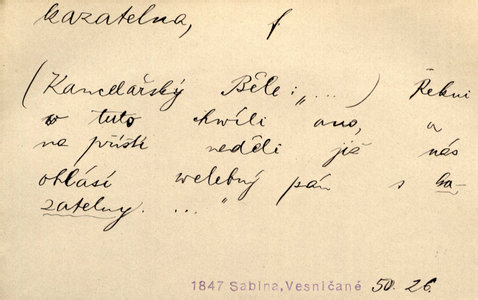 kazatelna, f
(Kancelářský Běle: „...) Řekni
v tuto chvíli ano, a
na příští neděli již nás
ohlásí welebný pán s ka-
zatelny. ..."
1847 Sabina, Vesničané 50. 26.